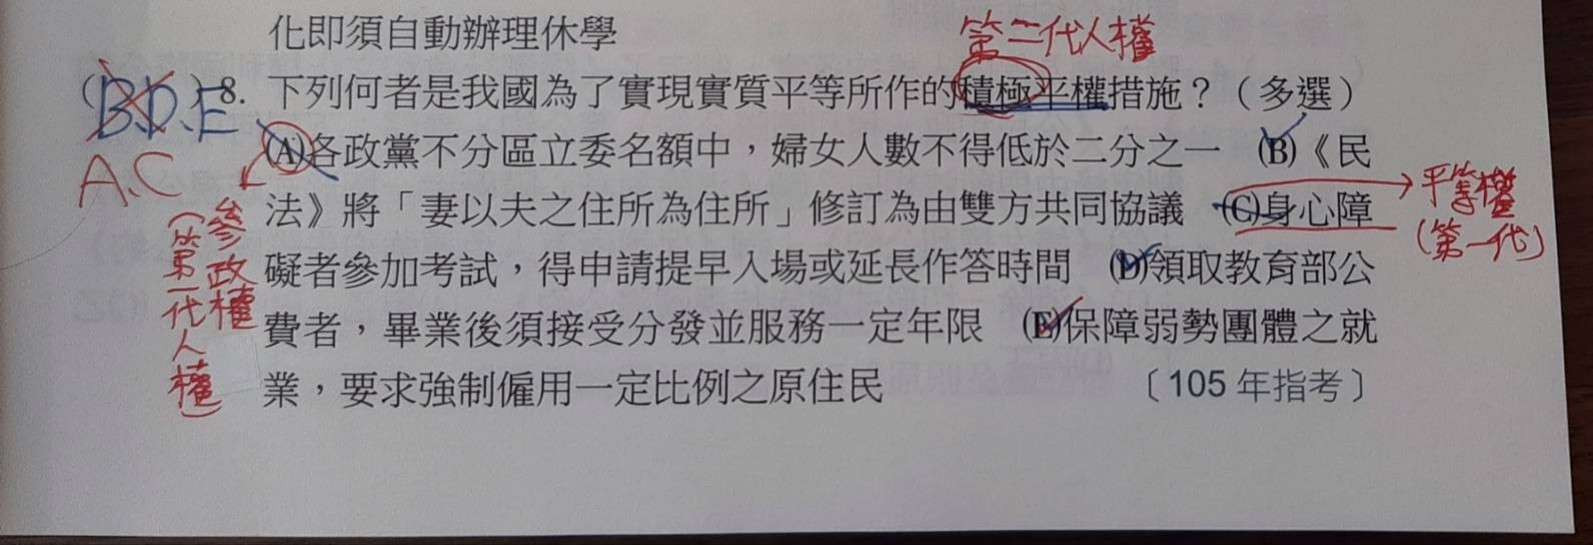 化即須自動辦理休學
第二代人權
(B.D.E)8. 下列何者是我國為了實現實質平等所作的積極平權措施？（多選）
A.C
(A)各政黨不分區立委名額中，婦女人數不得低於二分之一 (B)《民
法》將「妻以夫之住所為住所」修訂為由雙方共同協議 (C)身心障
平等權
(第一代)
礙者參加考試，得申請提早入場或延長作答時間 (D)領取教育部公
費者，畢業後須接受分發並服務一定年限 (E)保障弱勢團體之就
業，要求強制僱用一定比例之原住民 〔105 年指考〕
參政權
(第一代人權)